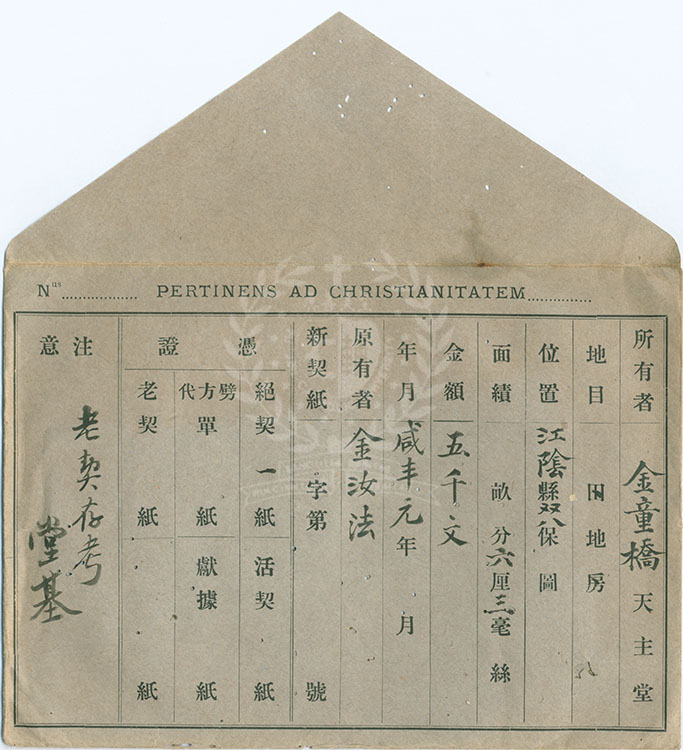 Nus PERTINENS AD CHRISTIANITATEM
所有者 金童橋天主堂
地目 田地房
位置 江陰縣双八保圖
面績 畝分六厘三毫絲
金額 五千文
年月 咸丰元年月
原有者 金汝法
新契紙 字第號
憑證
絕契一紙 活契紙
劈方代單紙 獻據紙
老契紙 紙
注意
老契存考
堂基